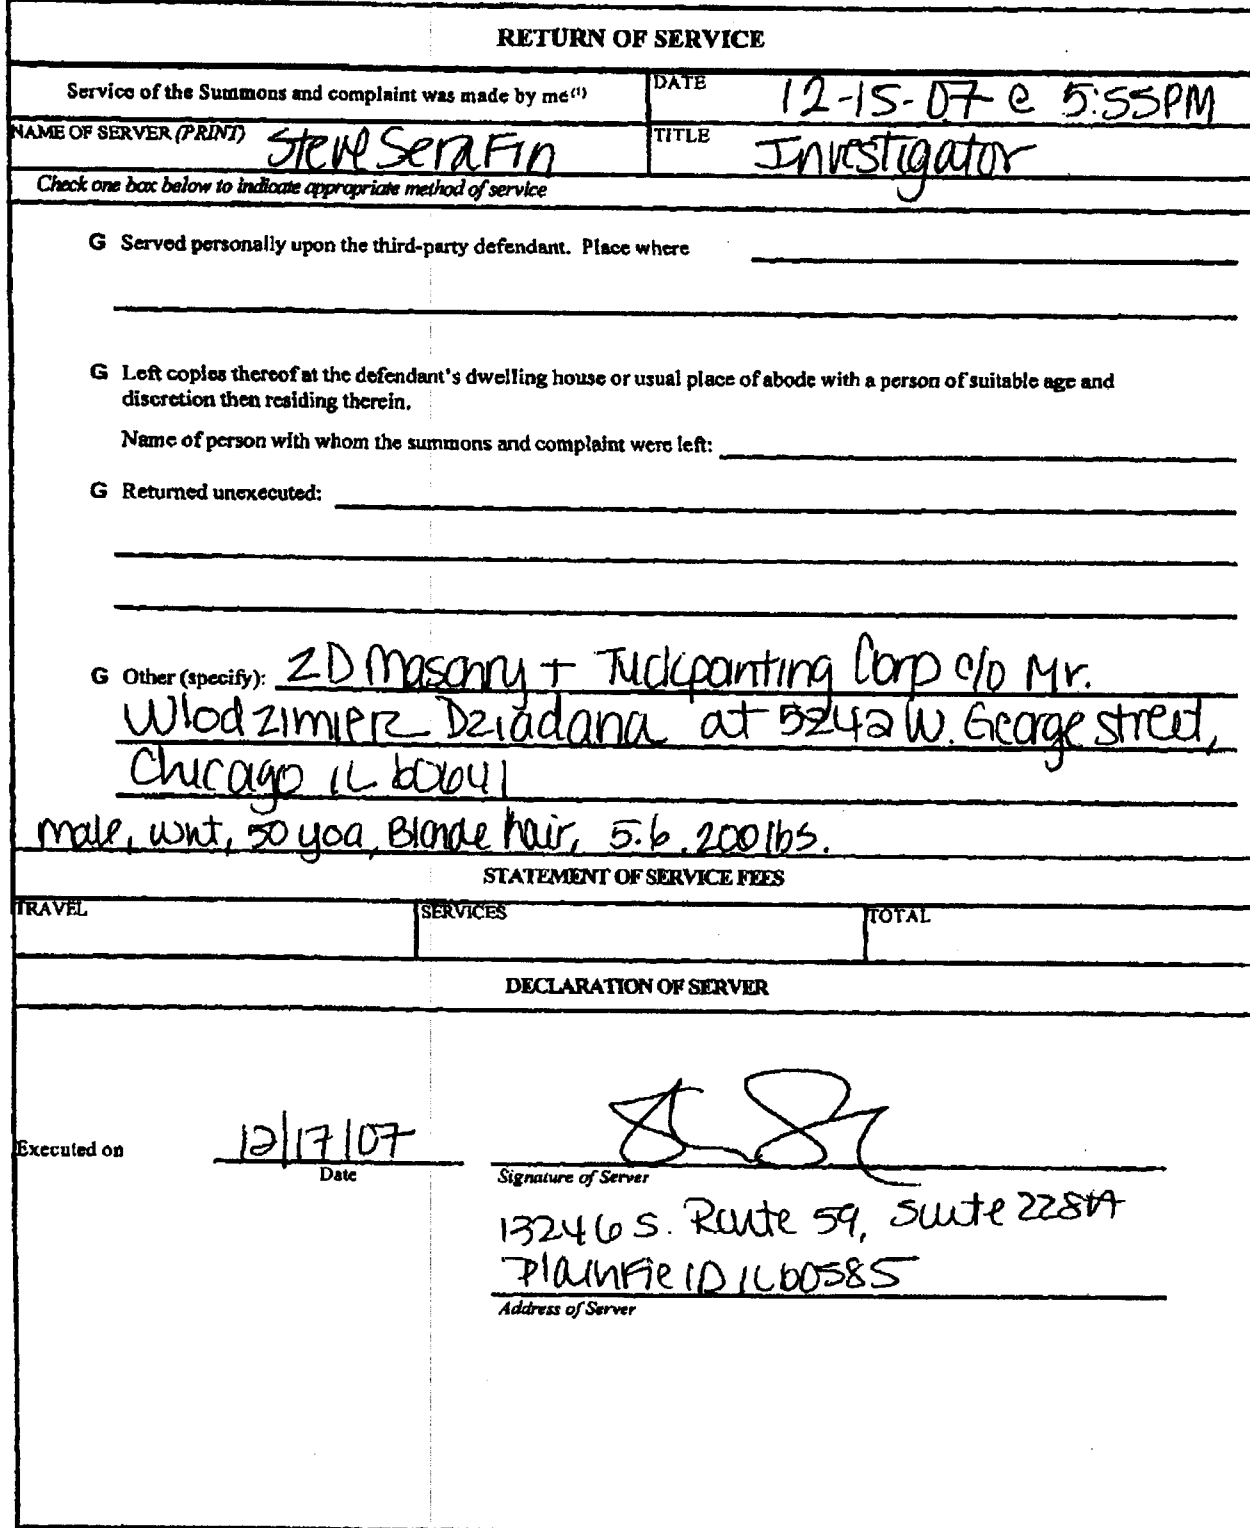 RETURN OF SERVICE
Service of the Summons and complaint was made by me(1)
DATE 12-15-07 @ 5:55PM
NAME OF SERVER (PRINT) Steve Serafin
TITLE Investigator
Check one box below to indicate appropriate method of service
G Served personally upon the third-party defendant. Place where
G Left copies thereof at the defendant's dwelling house or usual place of abode with a person of suitable age and
discretion then residing therein.
Name of person with whom the summons and complaint were left:
G Returned unexecuted:
G Other (specify): ZD Masonry + Tuckpointing Corp c/o Mr.
Wlodzimierz Dziadana at 5242 W. George street,
Chicago IL 60641
male, wht, 50 yoa, Blonde hair, 5.6. 200 lbs.
STATEMENT OF SERVICE FEES
TRAVEL SERVICES TOTAL
DECLARATION OF SERVER
Executed on 12/17/07
Date
Signature of Server
13246 S. Route 59, Suite
Plainfield IL 60585
Address of Server